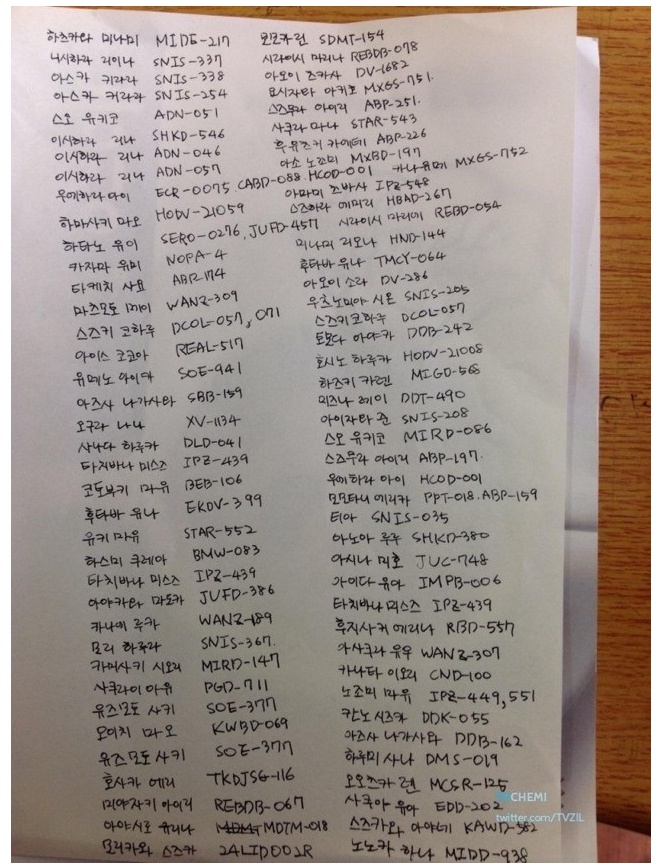 하츠카와 미나미 MIDE-217
니시하라 리이나 SNIS-337
아스카 키라라 SNIS-338
아스카 키라라 SNIS-254
스오 유키코 ADN-051
이시하라 리나 SHKD-546
이시하라 리나 ADN-046
이시하라 리나 ADN-057
우에하라 아이 ECR-0075. CABD-088. HCOD-001
하마사키 마오 HODV-21059
하타노 유이 SERO-0276, JUFD-457
카자마 유미 NOPA-4
타케치 사요 ABP-174
마츠모토 메이 WANZ-309
스즈키 코하루 DCOL-057, 071
아이스 코코아 REAL-517
유메노 아이카 SOE-941
아즈사 나가사와 SBB-159
오구라 나나 XV-1134
사나다 하루카 DLD-041
타치바나 미스즈 IPZ-439
코토부키 마유 BEB-106
후타바 유나 EKDV-399
유키 마유 STAR-552
하스미 쿠레아 BMW-083
타치바나 미스즈 IPZ-439
아야카와 마도카 JUFD-386
카나에 루카 WANZ-189
모리 하루라 SNIS-367.
카미사키 시오리 MIRD-147
사쿠라이 아유 PGD-711
유즈모토 사키 SOE-377
오이치 마오 KWBD-069
유즈모토 사키 SOE-377
호사카 에리 TKDJSG-116
미야자키 아이리 REBDB-067
아야시로 유리나 MDTM-018
모리카와 스즈카 24LID002R
모모카 런 SDMT-154
시라이시 마리나 REBDB-078
아오이 츠카사 DV-1682
요시자와 아키호 MXGS-751.
스즈무라 아이리 ABP-251.
사쿠라 마나 STAR-543
후유즈키 카에데 ABP-226
아소 노조미 MXBD-197 카나 유메 MXGS-752
아마미 츠바사 IPZ-548
스즈하라 에미리 HBAD-267
시라이시 마리에 REBD-054
미나미 리오나 HND-144
후타바 유나 TMCY-064
아오이 소라 DV-286
우츠노미야 시온 SNIS-205
스즈키 코하루 DCOL-057
토모다 아야카 DDB-242
호시노 하루카 HODV-21008
하즈키 카렌 MIGD-568
미즈나 레이 DDT-490
아이자와 쥰 SNIS-208
스오 유키코 MIRD-086
스즈무라 아이리 ABP-197.
우에하라 아이 HCOD-001
모모타니 에리카 PPT-018. ABP-159
티아 SNIS-035
아노아 루루 SHKD-380
아시나 미호 JUC-748
아이다 유아 IMPB-006
타치바나 미스즈 IPZ-439
후지사키 에리나 RBD-557
아사쿠라 유우 WANZ-307
카나타 이오리 CND-100
노조미 마유 IPZ-449, 551
칸노 시즈카 DDK-055
아즈사 나가사와 DDB-162
하루미 사나 DMS-019
오오츠카 렌 MCSR-125
사쿠야 유아 EDD-202
스즈카와 아야네 KAWD-582
노노카 하나 MIDD-938
CHEMI
twitter.com/TVZIL